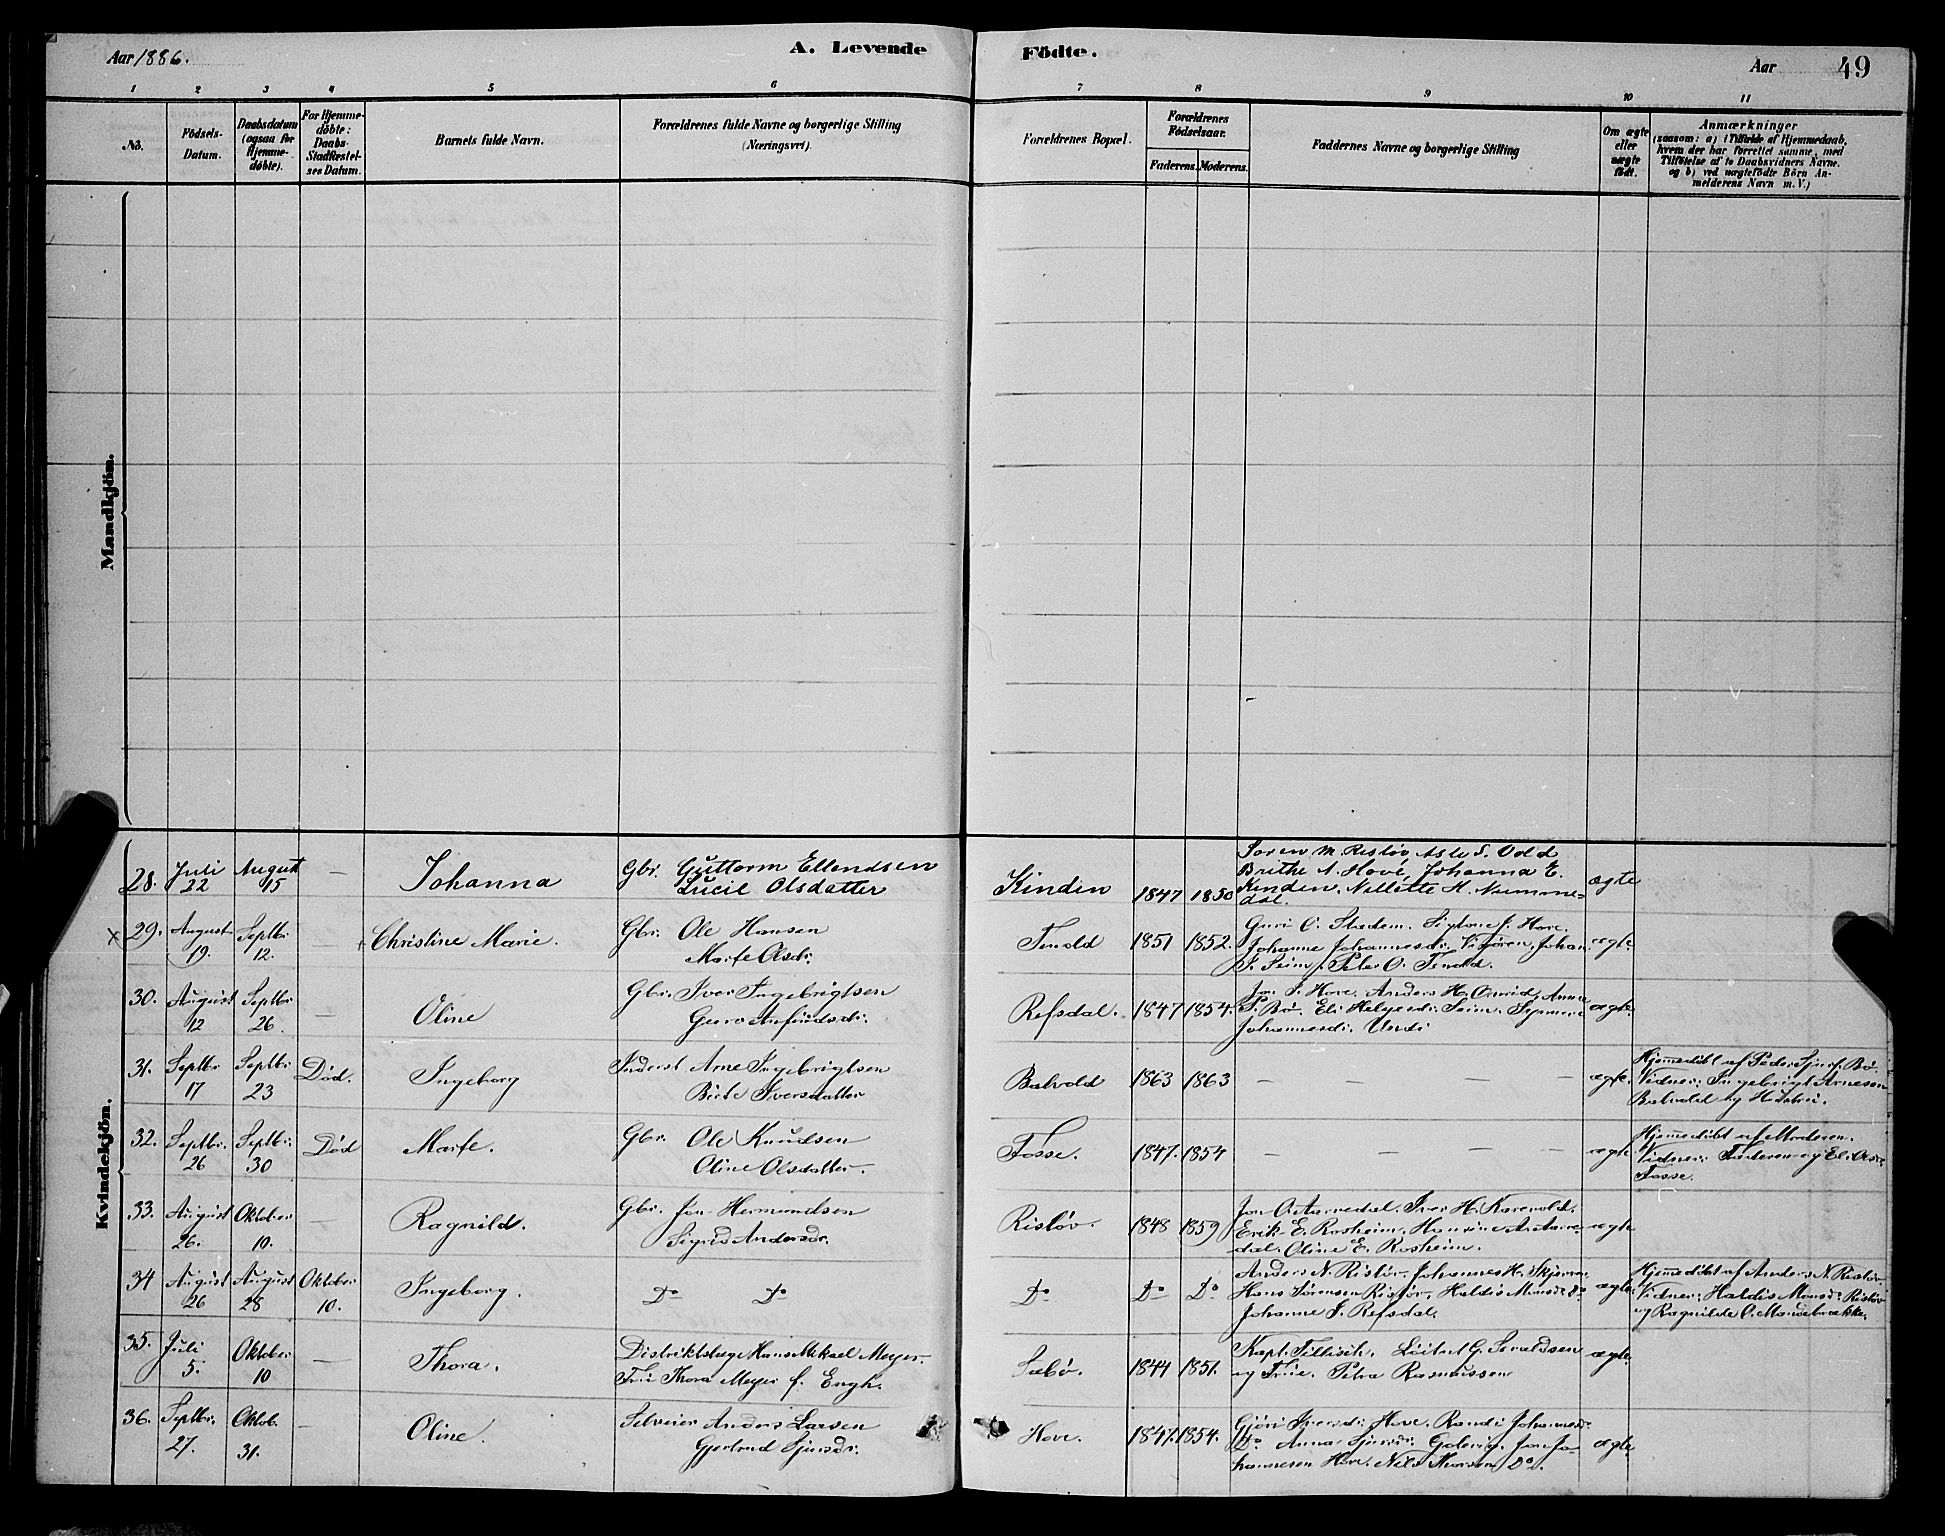 Aar 1886.
A. Levende
Födte.
Aar
49
1 2 3 4 5 6 7 8 9 10 11
No. Födsels-Datum. Daabsdatum (ogsaa for Hjemme-døbte). For Hjemme-döbte: Daabs-Stadfestel-ses Datum. Barnets fulde Navn. Forældrenes fulde Navne og borgerlige Stilling (Næringsvei). Forældrenes Bopæl. Forældrenes Födselsaar. Faderens. Moderens. Faddernes Navne og borgerlige Stilling Om ægte eller uægte födt.
Anmærkninger
(saasom: a) i Tilfælde af Hjemmedaab,
hvem der har forrettet samme, med
Tilföielse af to Daabsvidners Navne.
og b) ved uægtefödte Börn An-
melderens Navn m. V.)
Mandkjön.
Kvindekjön.
28. Juli 22 August 15 — Johanna Gbr. Guttorm Ellendsen
Lucie Olsdatter
Kinden 1847 1850
Søren M. Risløv, Asle S. Vold
Brithe A. Hove, Johanna E.
Kinden, Nillette H. Numme=
dal.
ægte
× 29. August 19. Septbr 12. — Christine Marie. Gbr. Ole Hansen
Marte Olsdr.
Tenold 1851 1852.
Guri O. Stadem. J. Hove.
Johanne Johannesdr. Johan
S. Seim, Peter O. Tenold.
ægte
30. August 12 Septbr 26. — Oline Gbr. Iver Ingebrigtsen
Guro Anfindsdr.
Refsdal. 1847 1854.
J. Hove. Anders H. Anna
P. Bø. Eli Helgesdr. Seim.
Johannesdr. Undi
ægte.
31. Septbr 17 Septbr 23 Død. Ingeborg Inderst Arne Ingebrigtsen
Birte Iversdatter
Balvold 1863 1863 — — — — ægte.
Hjemmedøbt af Peder Sjurs. Bø.
Vidner: Ingebrigt Arnesen
Balvold og
32. Septbr. 26 Septbr. 30 Død Marte. Gbr. Ole Knudsen
Oline Olsdatter.
Fosse. 1847. 1854 — — — — ægte
Hjemmedøbt af Moderen.
Vidner: Faderen og Eli Olsdr.
Fosse.
33. August 26. Oktober 10. — Ragnild. Gbr. Jon Hermundsen
Sigrid Andersdr.
Risløv. 1848 1859
Jon O. Aarnedal. Iver H. Karevold.
Erik E. Rosheim, Aarne-
dal. Oline E. Rosheim.
ægte
34 August 26 August 28 Oktober 10. Ingeborg. Do Do
Do Do Do
Anders N. Risløv. Johannes H.
Hans Sørensen Risløv, Haldis Monsdr. Do
Johanne I. Refsdal.
ægte.
Hjemmedøbt af Anders N. Risløv
Vidner: Haldis Monsdr. Risløv
og Ragnilde O.
35. Juli 5. Oktober 10 — Thora. Distriktslæge Hans Mikael Meyer.
Frue Thora Meyer f. Engh.
Sæbø. 1844 1851.
Kapt. Tillisch. Løitnt G.
og Frue. Petra Rasmussen
ægte.
36. Septbr. 27. Oktob. 31. — Oline. Selveier Anders Larsen
Gjertrud Sjursdr.
Hove. 1847. 1854.
Gjøri Iversdr. Hove. Randi Johannesdr.
Do. Anna Sjursdr. Jon Jo-
hannesen Hove. Nils Do.
ægte